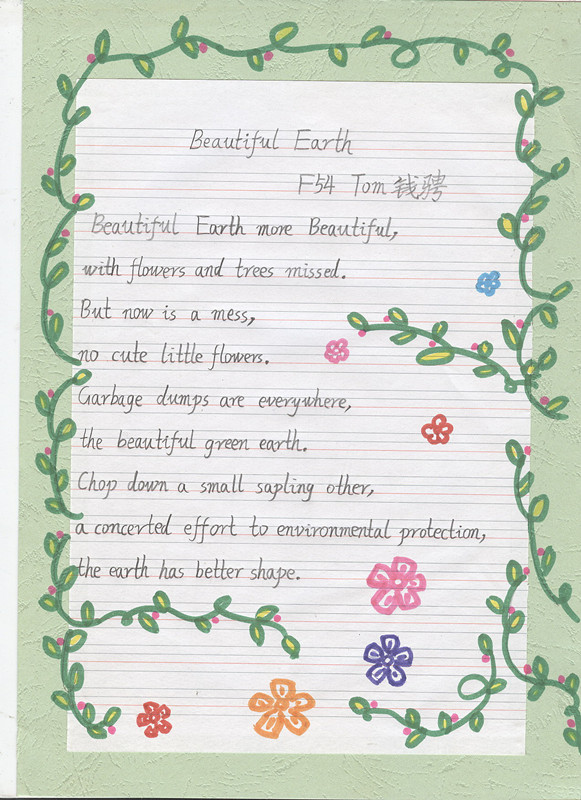 Beautiful Earth
F54 Tom 钱骋
Beautiful Earth more Beautiful,
with flowers and trees missed.
But now is a mess,
no cute little flowers.
Garbage dumps are everywhere,
the beautiful green earth.
Chop down a small sapling other,
a concerted effort to environmental protection,
the earth has better shape.